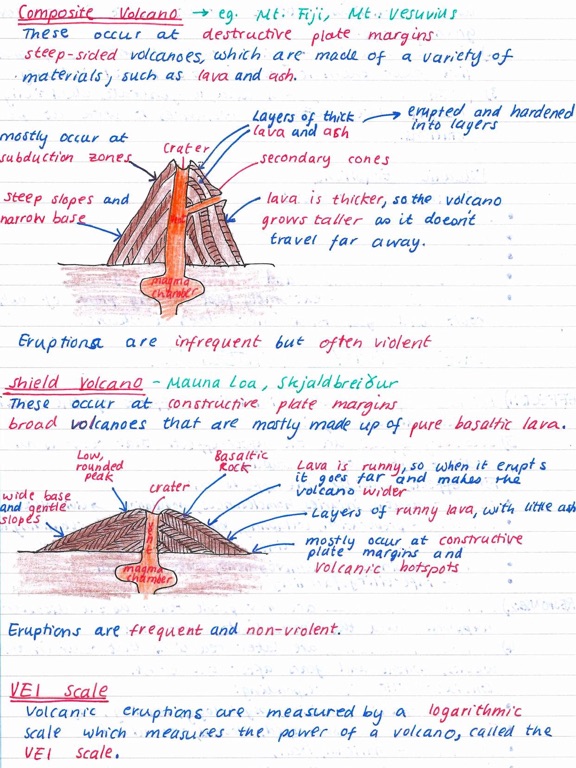 Composite Volcano → eg. Mt. Fiji, Mt. Vesuvius
These occur at destructive plate margins.
steep-sided volcanoes, which are made of a variety of
materials, such as lava and ash.
Layers of thick
lava and ash
erupted and hardened
into layers
mostly occur at
subduction zones
crater
secondary cones
steep slopes and
narrow base
lava is thicker, so the volcano
grows taller as it doesn't
travel far away.
magma
chamber
Eruptions are infrequent but often violent
Shield Volcano - Mauna Loa, Skjaldbreiður
These occur at constructive plate margins
broad volcanoes that are mostly made up of pure basaltic lava.
Low,
rounded
peak
Basaltic
Rock
crater
Lava is runny, so when it erupts
it goes far and makes the
volcano wider
wide base
and gentle
slopes
Layers of runny lava, with little ash
vent
mostly occur at constructive
plate margins and
volcanic hotspots
magma
chamber
Eruptions are frequent and non-violent.
VEI scale
Volcanic eruptions are measured by a logarithmic
scale which measures the power of a volcano, called the
VEI scale.